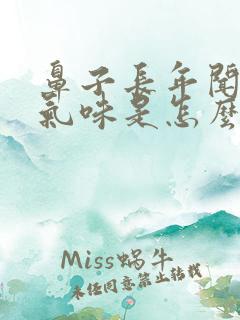 鼻子長年聞
氣味是怎麼
Miss蝸牛
未经同意禁止转载